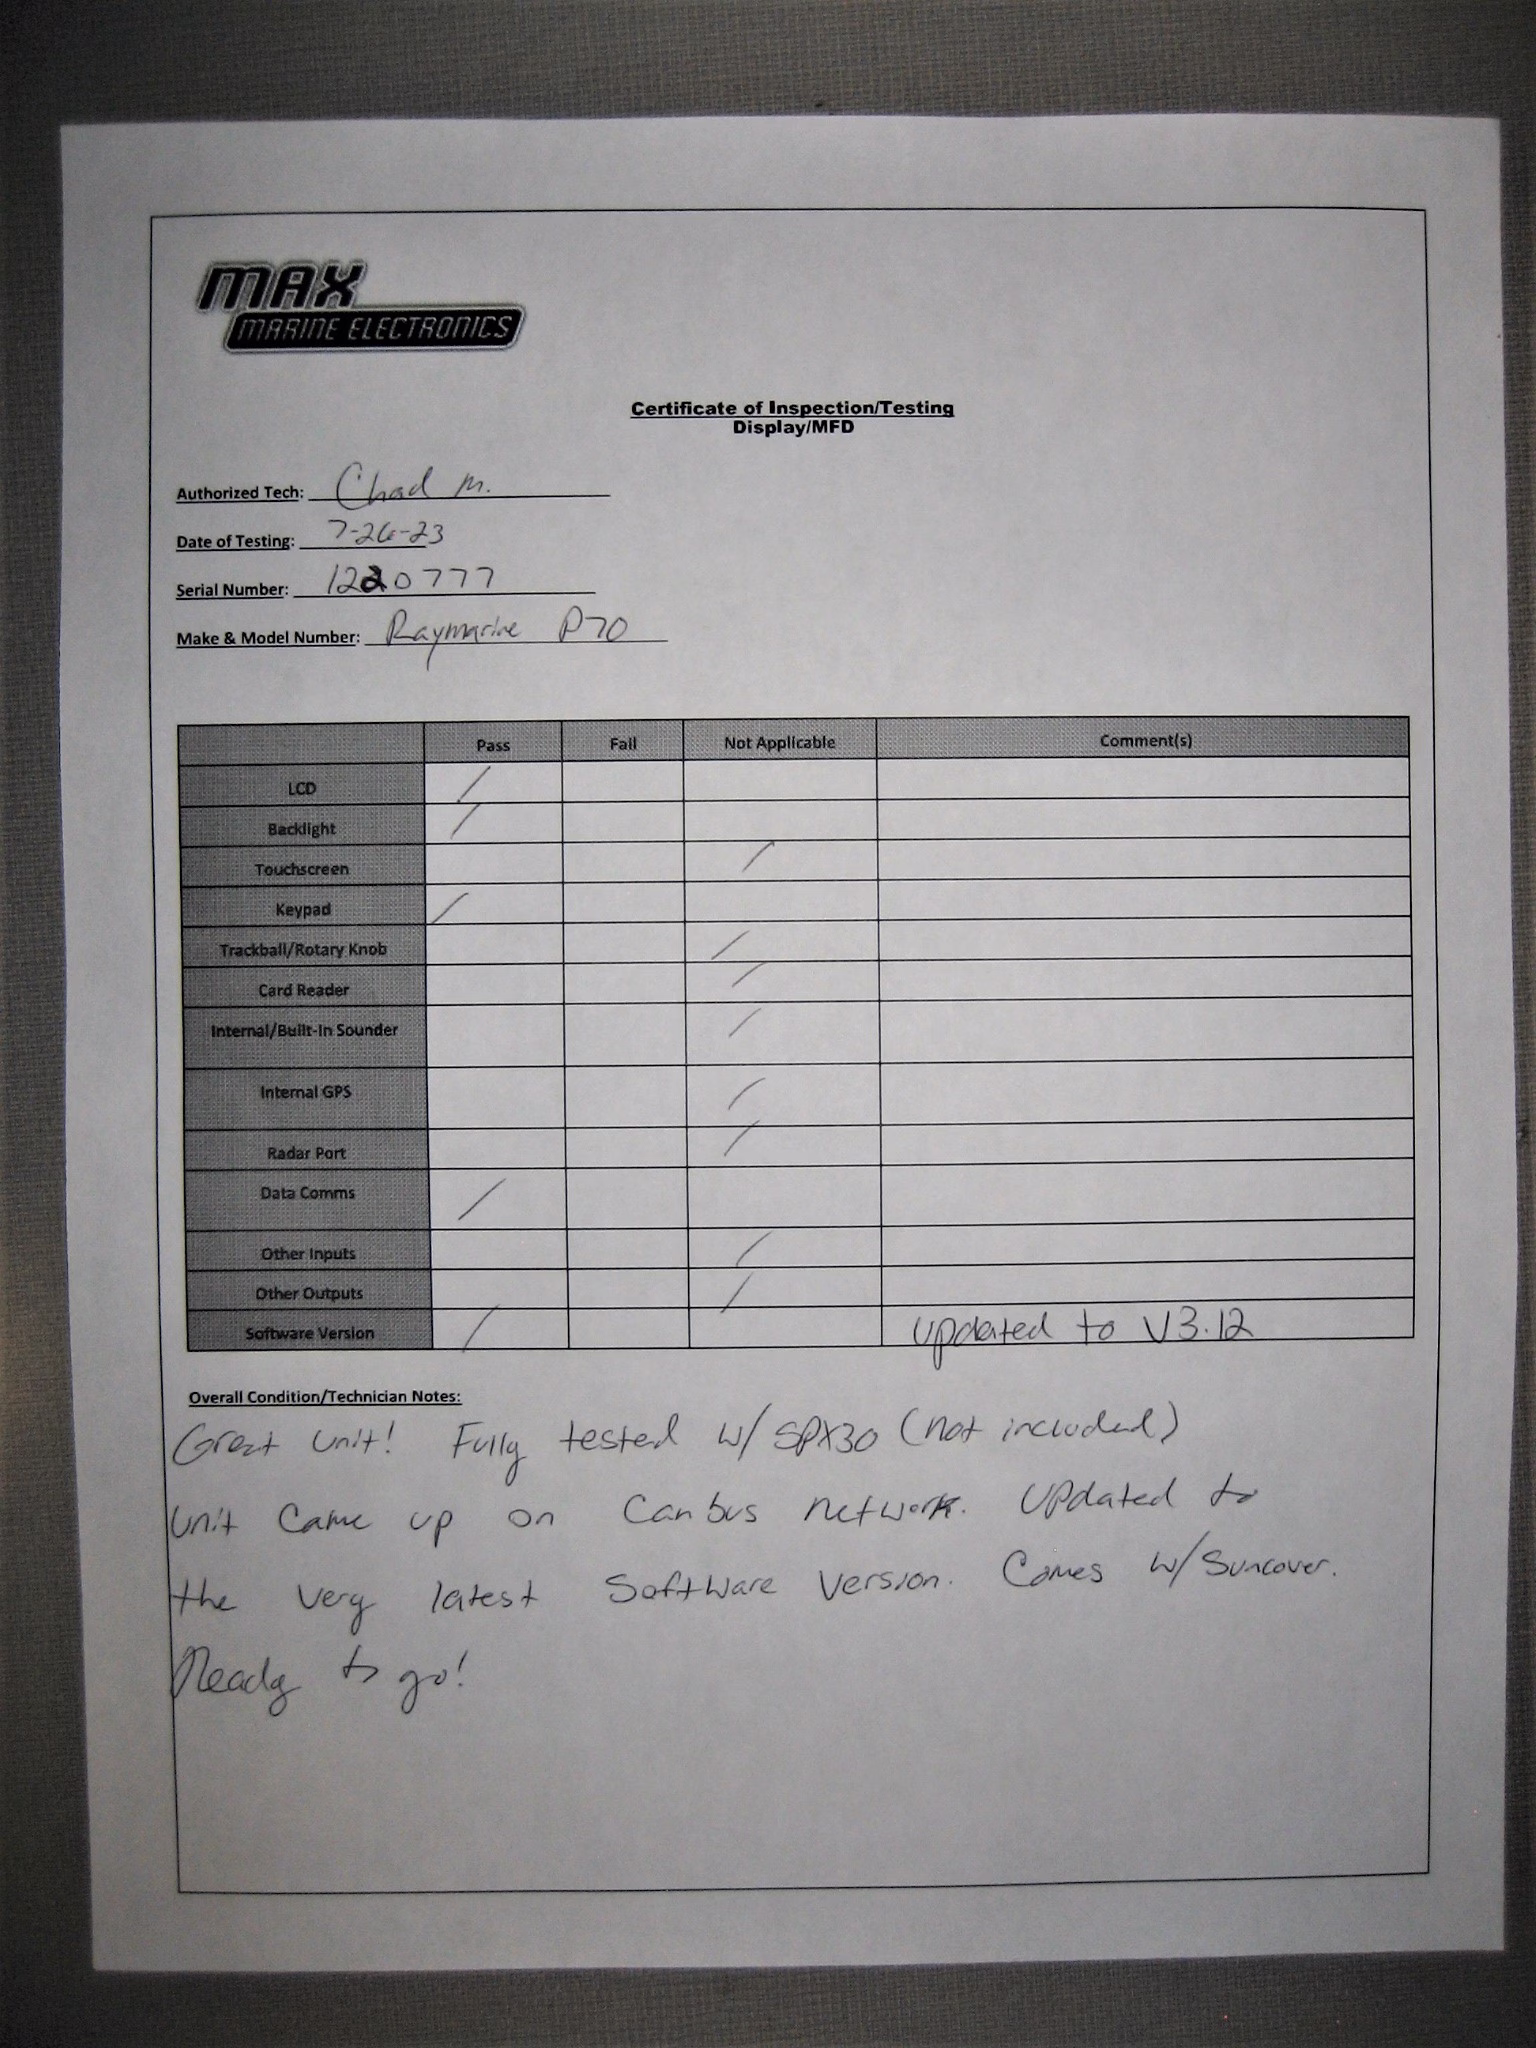 MAX
MARINE ELECTRONICS
Certificate of Inspection/Testing
Display/MFD
Authorized Tech: Chad M.
Date of Testing: 7-26-23
Serial Number: 1220777
Make & Model Number: Raymarine P70
Pass Fail Not Applicable Comment(s)
LCD /
Backlight /
Touchscreen /
Keypad /
Trackball/Rotary Knob /
Card Reader /
Internal/Built-In Sounder /
Internal GPS /
Radar Port /
Data Comms /
Other Inputs /
Other Outputs /
Software Version / Updated to V3.12
Overall Condition/Technician Notes:
Great unit! Fully tested w/ SPX30 (not included)
Unit came up on Canbus network. Updated to
the very latest Software Version. Comes w/ Suncover.
Ready to go!